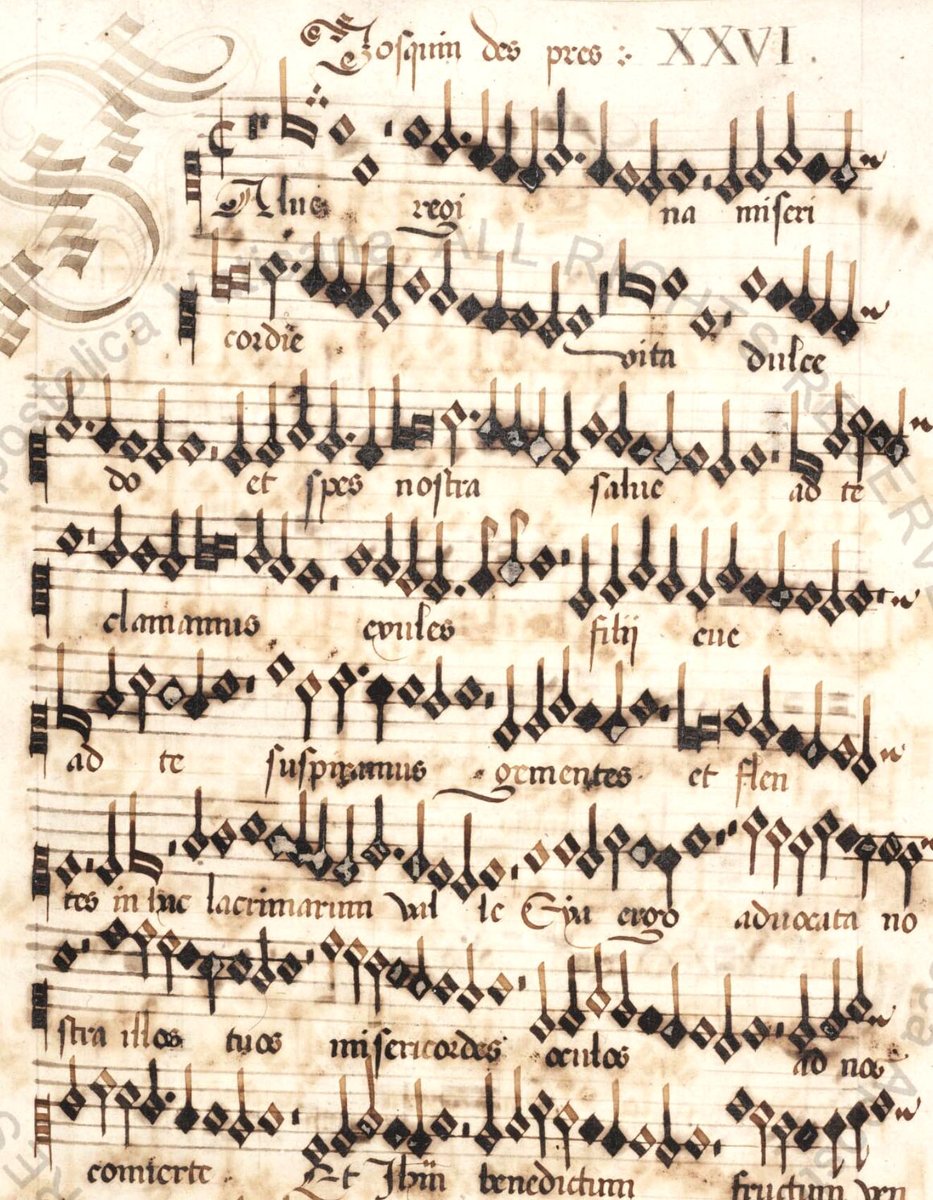 Josquin des pres : XXVI .
Alue regi na miseri
cordie vita dulce
do et spes nostra salue ad te
clamamus exules filij eue
ad te suspiramus gementes et flen
tes in hac lacrimarum val le Eya ergo aduocata no
stra illos tuos misericordes oculos ad nos
conuerte Et Jhm benedictum fructum ven
ALL RIGHTS RESERVE